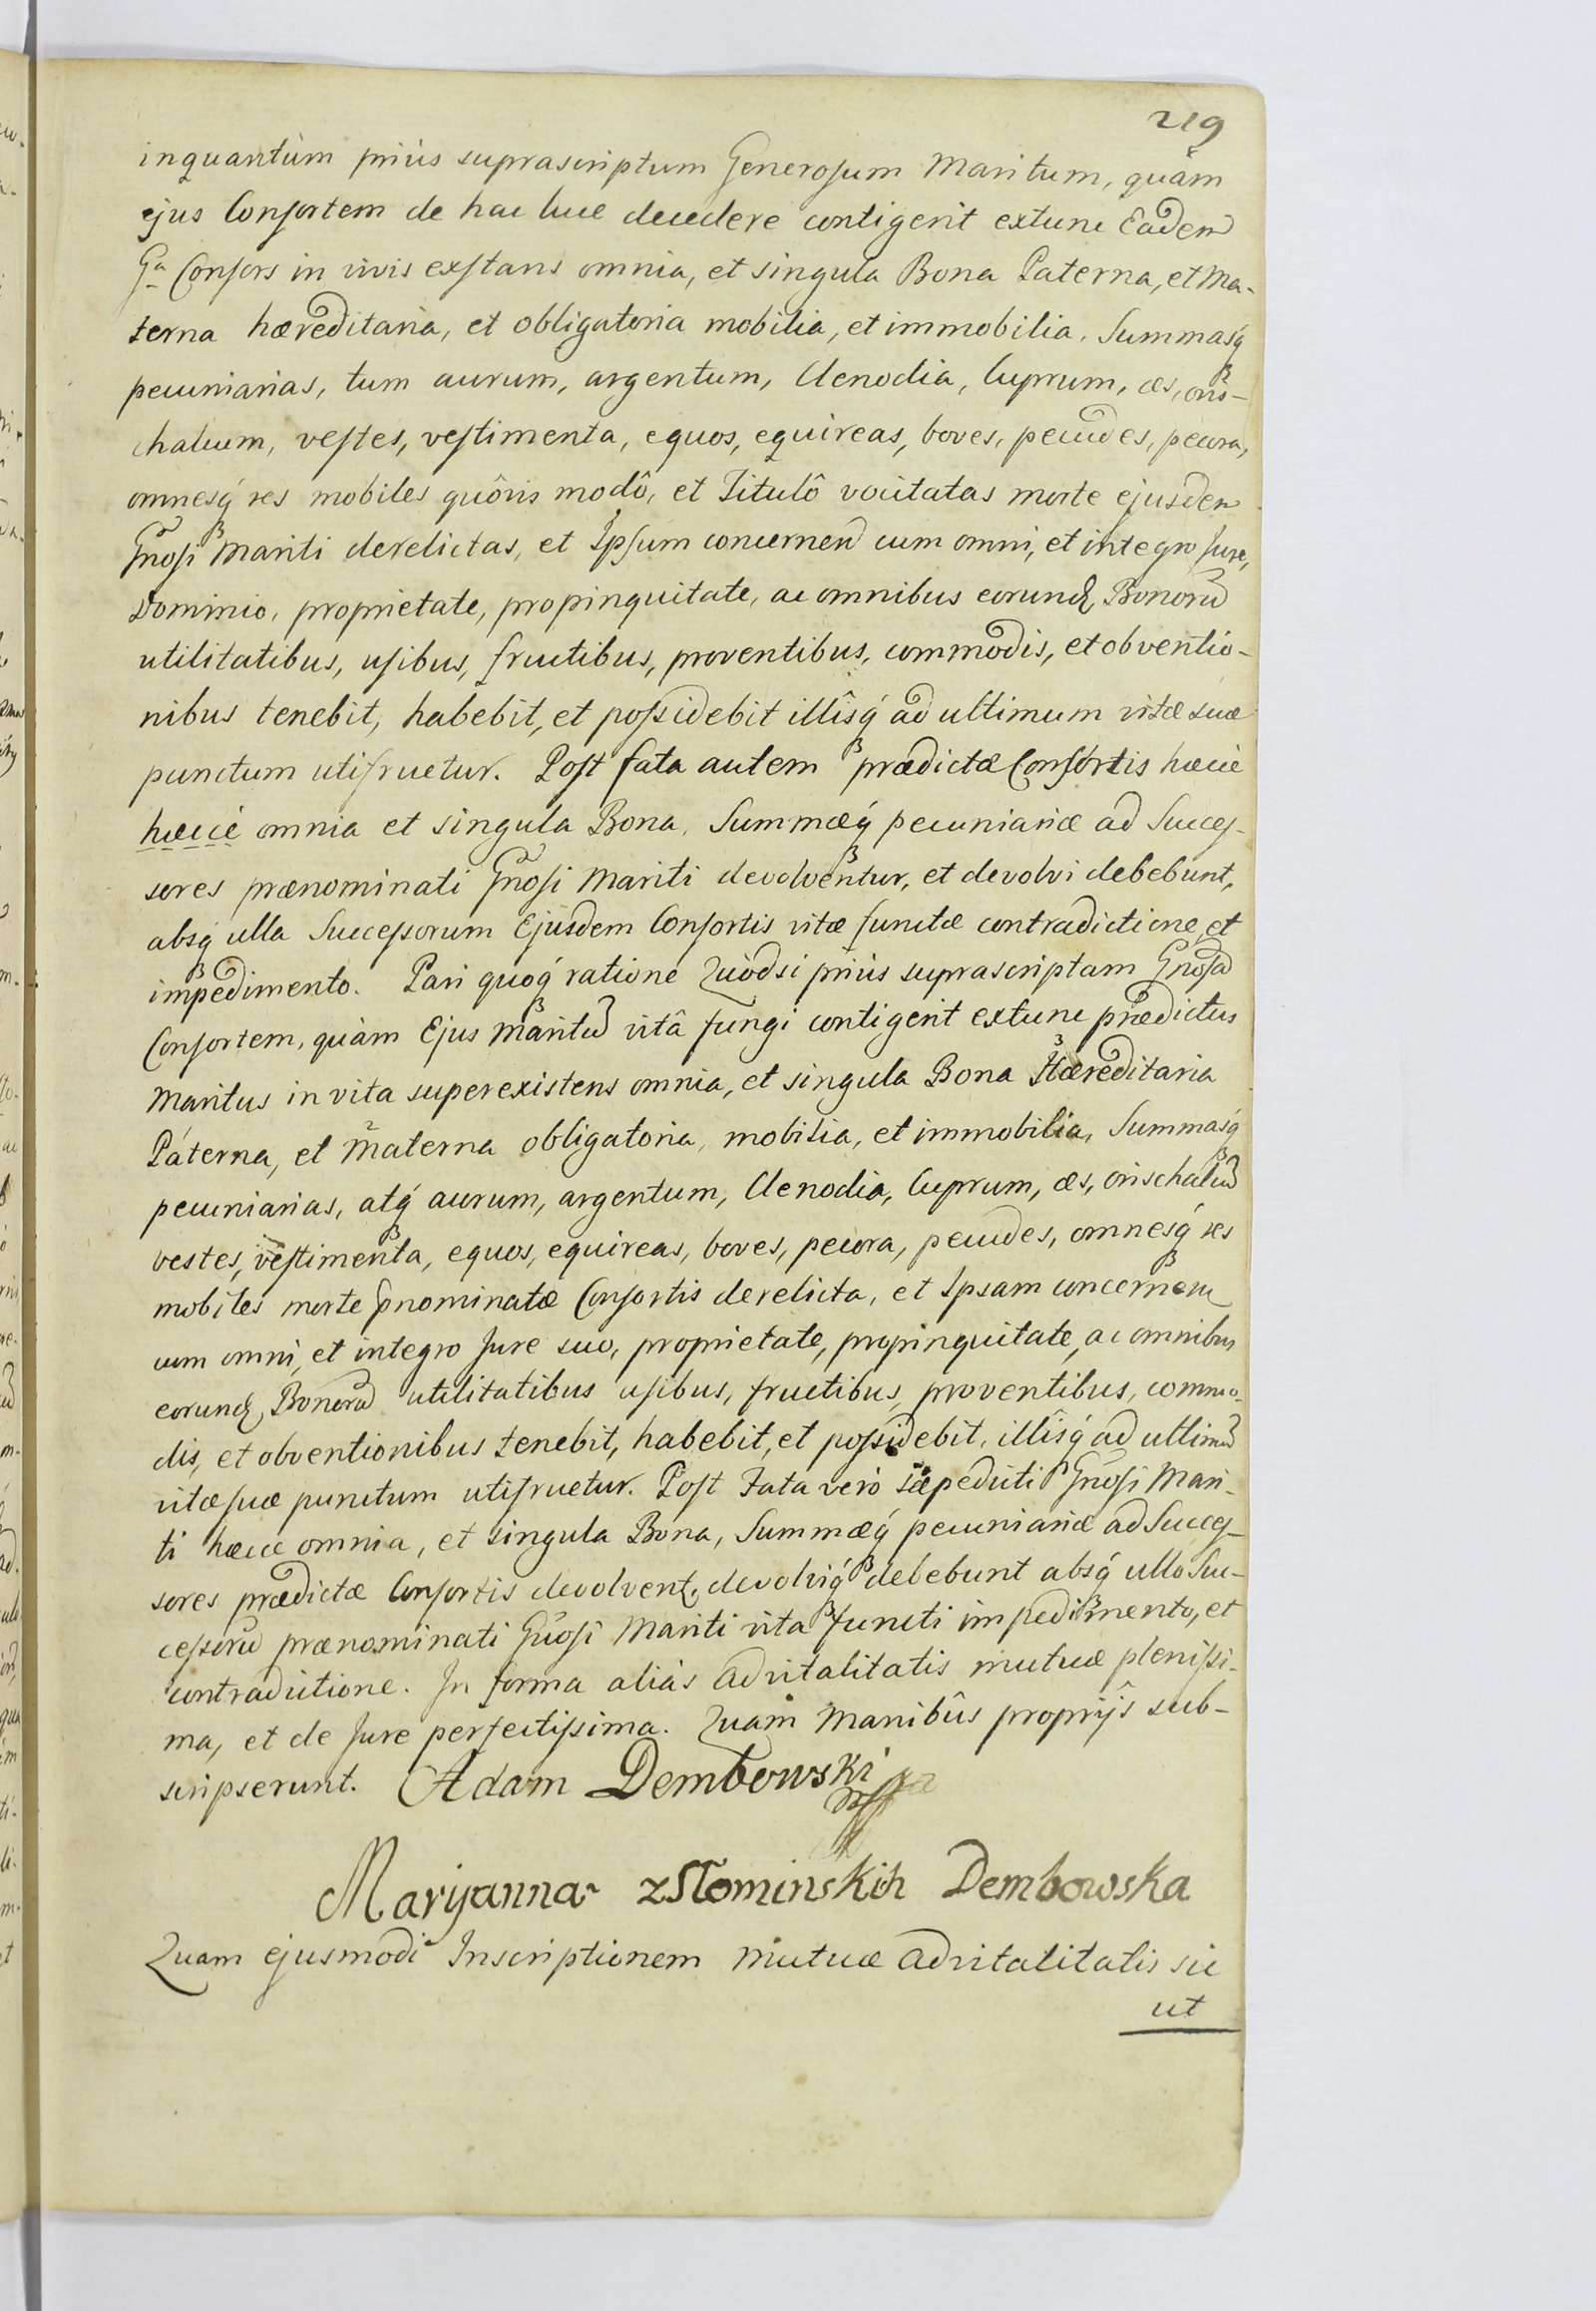 219
inquantùm priùs suprascriptum Generosum Maritum, quàm
ejus Consortem de hac luce decedere contigerit extunc Eadem
Gn̄a Consors in vivis exstans omnia, et singula Bona Paterna, et Ma-
terna hæreditaria, et obligatoria mobilia, et immobilia, Summasq́
pecuniarias, tum aurum, argentum, Clenodia, Cuprum, æs, ori-
chalcum, vestes, vestimenta, equos, equireas, boves, pecudes, pecora,
omnesq́ res mobiles quôvis modô, et Titulô vocitatas morte ejusdem
Gn̄osi Mariti derelictas, et Ipsum concernen̄ cum omni, et integro Jure,
Dominio, proprietate, propinquitate, ac omnibus eorund Bonorū
utilitatibus, usibus, fructibus, proventibus, commodis, et obventio-
nibus tenebit, habebit, et possidebit illîsq́ ad ultimum vitæ suæ
punctum utifruetur. Post fata autem prædictæ Consortis hæcce
hæcce omnia et singula Bona, Summæq́ pecuniariæ ad Succes-
sores prænominati Gn̄osi Mariti devolventur, et devolvi debebunt,
absq́ ulla Successorum Ejusdem Consortis vitæ functæ contradictione, et
impedimento. Pari quoq́ ratione Quòdsi priùs suprascriptam Gn̄osā
Consortem, quàm Ejus Maritū vitâ fungi contigerit extunc prædictus
Maritus in vita superexistens omnia, et singula Bona Hæreditaria
Paterna, et Materna obligatoria, mobilia, et immobilia, Summasq́
pecuniarias, atq́ aurum, argentum, Clenodia, Cuprum, æs, orischalcū
vestes, vestimenta, equos, equireas, boves, pecora, pecudes, omnesq́ res
mobiles morte p̄nominatæ Consortis derelicta, et Ipsam concernen
cum omni, et integro Jure suo, proprietate, propinquitate, ac omnibus
eorund Bonorū utilitatibus usibus, fructibus, proventibus, commo-
dis, et obventionibus tenebit, habebit, et possidebit, illîsq́ ad ultimū
vitæ suæ punctum utifruetur. Post Fata verò sæpedicti Gn̄osi Mari-
ti hæcce omnia, et singula Bona, Summæq́ pecuniariæ ad Succes-
sores prædictæ Consortis devolvent, devolviq́ debebunt absq́ ullo Suc-
cessorū prænominati Gn̄osi Mariti vita functi impedimento, et
contradictione. In forma aliàs Advitalitatis mutuæ plenissi-
ma, et de Jure perfectissima. Quam Manibûs proprijs sub-
scripserunt. Adam Dembowski
Maryanna z Słominskich Dembowska
Quam ejusmodi Inscriptionem mutuæ Advitalitatis sic
ut